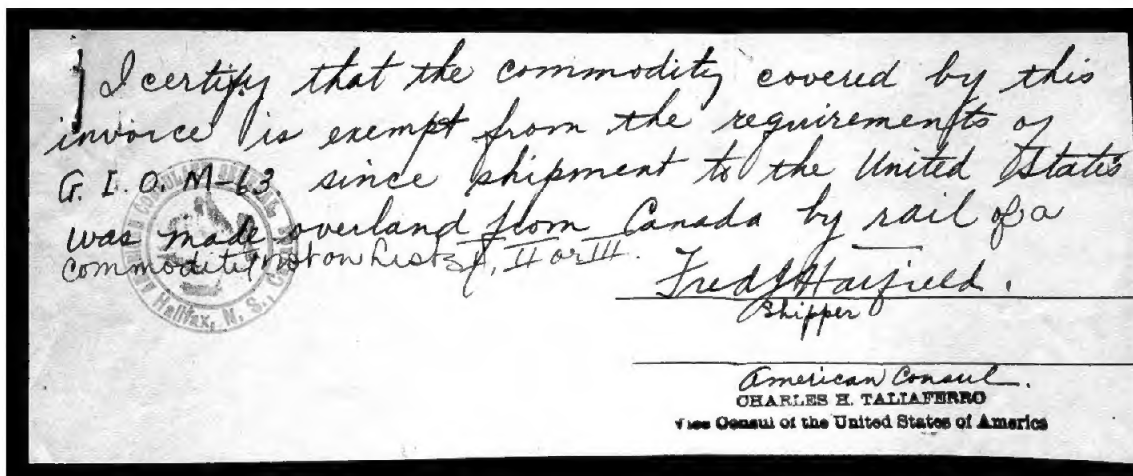 I certify that the commodity covered by this
invoice is exempt from the requirements of
G. I. O. M-63. since shipment to the United States
was made overland from Canada by rail of a
commodity not on Lists I, II or III.
Fred J Harfield.
Shipper
American Consul.
CHARLES H. TALIAFERRO
Vice Consul of the United States of America
Halifax, N. S.,